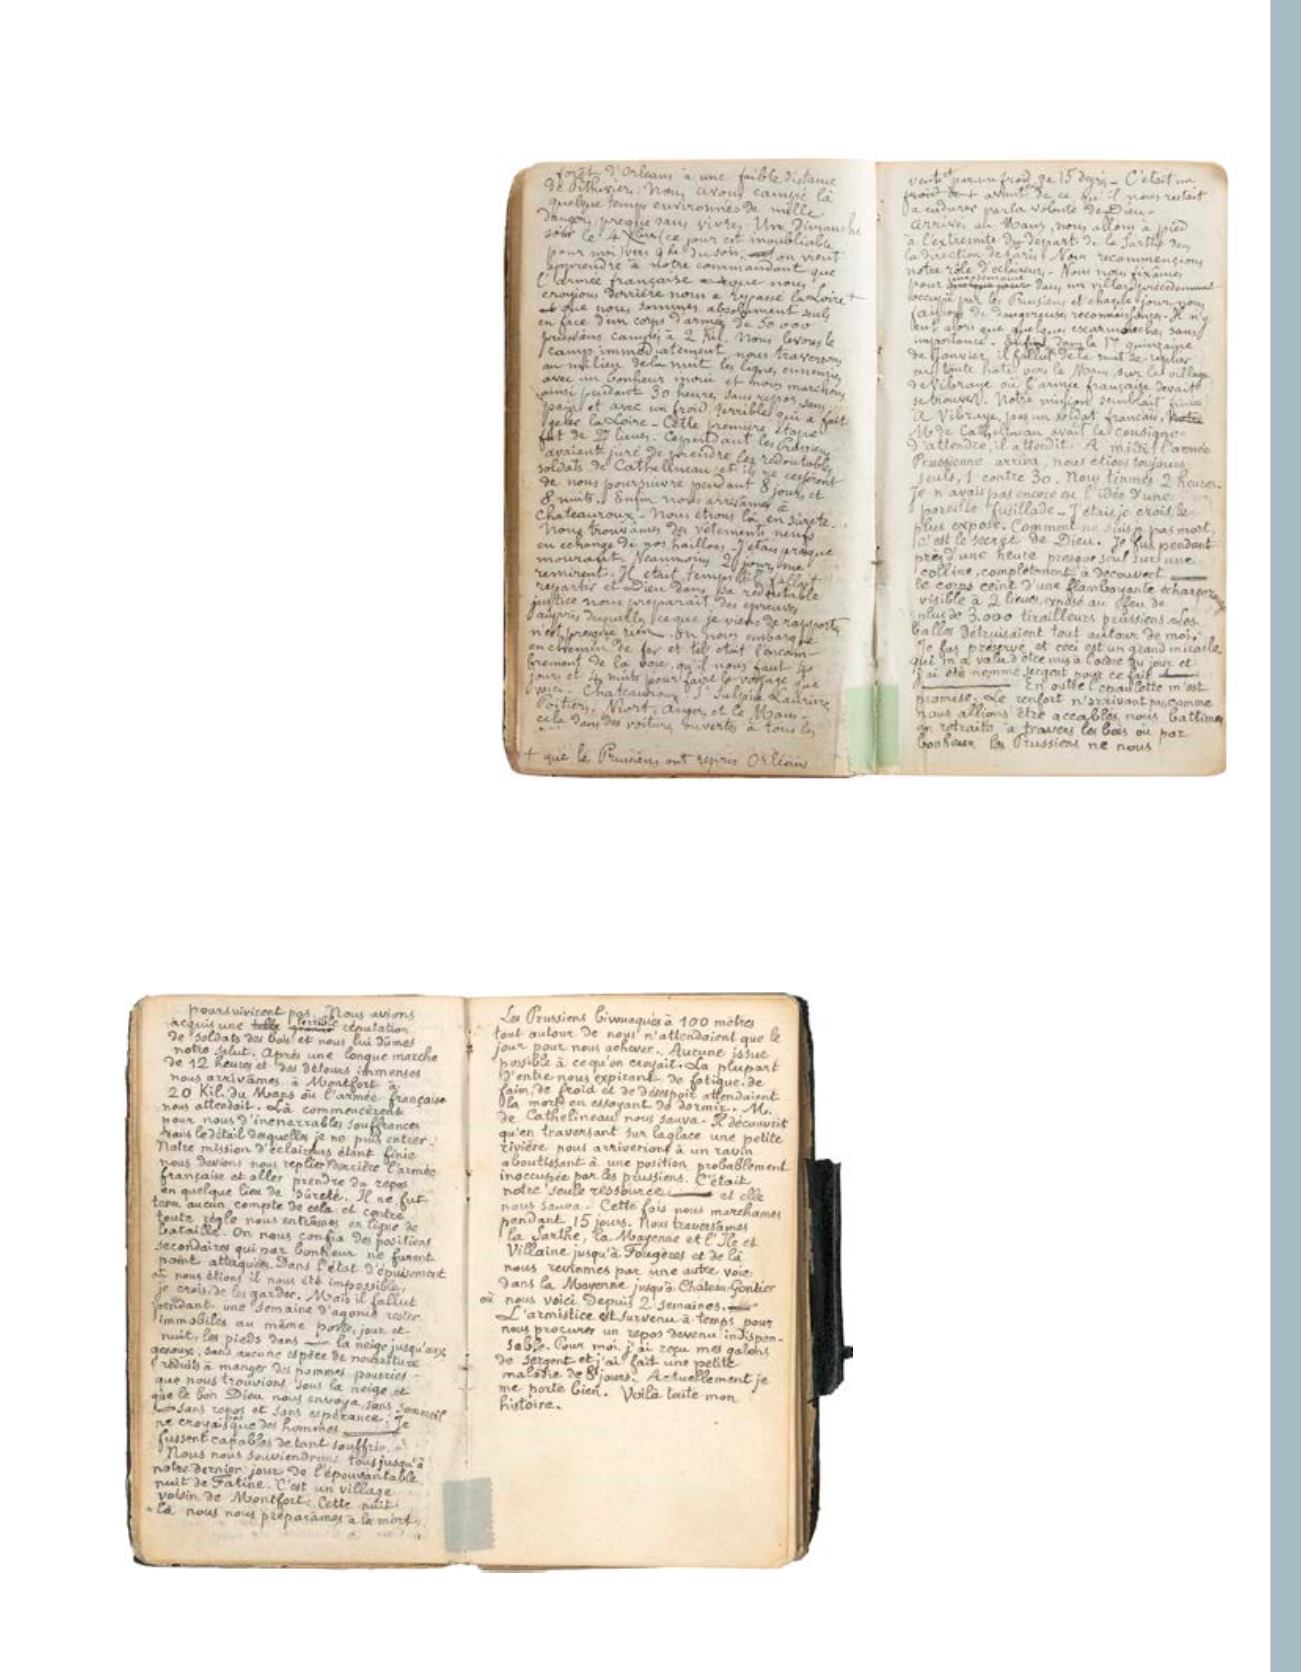 forêt d'Orléans à une faible distance
de Pithiviers. Nous avons campé là
quelque temps environnés de mille
dangers, presque sans vivres. Un Dimanche
soir le 4 (ce jour est inoubliable
pour moi) vers 9 h. du soir, on vient
apprendre à notre commandant que
l'armée française que nous
croyions derrière nous a repassé la Loire +
et que nous sommes absolument seuls
en face d'un corps d'armée de 50 000
prussiens campés à 2 Kil. Nous levons le
camp immédiatement, nous traversons
au milieu de la nuit les lignes ennemies
avec un bonheur inouï et nous marchons
ainsi pendant 30 heures sans repos, sans
pain et avec un froid terrible qui a fait
geler la Loire – Cette première étape
fut de 27 lieues. Cependant les Prussiens
avaient juré de prendre les redoutables
soldats de Cathelineau et ils ne cessèrent
de nous poursuivre pendant 8 jours et
8 nuits. Enfin nous arrivâmes à
Chateauroux – Nous étions là en sûreté.
Nous trouvâmes des vêtements neufs
en échange de nos haillons – J'étais presque
mourant. Néanmoins 2 jours me
remirent. Il était temps. Il fallait
repartir et Dieu dans sa redoutable
justice nous préparait des épreuves
auprès desquelles ce que je viens de rapporter
n'est presque rien. On nous embarque
en chemin de fer et tel était l'encom-
brement de la voie, qu'il nous faut 4
jours et 4 nuits pour faire le voyage que
voici. Chateauroux, Sulpice Laurière
Poitiers, Niort, Angers et le Mans –
cela dans des voitures ouvertes à tous les
+ que les Prussiens ont repris Orléans
vents et par un froid de 15 degrés – C'était un
avant de ce qu'il nous restait
à endurer par la volonté de Dieu –
Arrivés au Mans, nous allons à pied
à l'extrémité du départ de la Sarthe dans
la direction de Paris. Nous recommençons
notre rôle d'éclaireurs. Nous nous fixâmes
pour dans un village précédemment
occupé par les Prussiens et chaque jour nous
faisions de dangereuses reconnaissances. Il n'y
eut alors que quelques escarmouches sans
importance – Enfin, dans la 1re quinzaine
de Janvier, il fallut de la nuit se replier
en toute hâte vers le Mans, sur le village
de Vibraye où l'armée française devait
se trouver. Notre mission semblait finie
A Vibraye, pas un soldat français.
M. de Cathelineau avait la consigne
d'attendre, il attendit. A midi l'armée
Prussienne arriva, nous étions toujours
seuls, 1 contre 30. Nous tînmes 2 heures.
Je n'avais pas encore eu l'idée d'une
pareille fusillade – J'étais je crois, le
plus exposé. Comment ne suis-je pas mort,
c'est le secret de Dieu. Je fus pendant
près d'une heure presque seul sur une
colline, complètement à découvert
le corps ceint d'une flamboyante écharpe
visible à 2 lieues, exposé au feu de
plus de 3.000 tirailleurs prussiens. Les
balles détruisaient tout autour de moi.
Je fus préservé et ceci est un grand miracle
qui m'a valu d'être mis à l'ordre du jour et
j'ai été nommé sergent pour ce fait
En outre l'épaulette m'est
promise. Le renfort n'arrivant pas, comme
nous allions être accablés, nous battîmes
en retraite à travers les bois où par
bonheur les Prussiens ne nous
poursuivirent pas. Nous avions
acquis une terrible réputation
de soldats des bois et nous lui dûmes
notre salut. Après une longue marche
de 12 heures et des détours immenses
nous arrivâmes à Montfort à
20 Kil. du Mans où l'armée française
nous attendait. Là commencèrent
pour nous d'inénarrables souffrances
dans le détail desquelles je ne puis entrer.
Notre mission d'éclaireurs étant finie
nous devions nous replier derrière l'armée
française et aller prendre du repos
en quelque lieu de sûreté. Il ne fut
tenu aucun compte de cela et contre
toute règle nous entrâmes en ligne de
bataille. On nous confia des positions
secondaires qui par bonheur ne furent
point attaquées. Dans l'état d'épuisement
où nous étions il nous eût été impossible,
je crois, de les garder. Mais il fallut
pendant une semaine d'agonie rester
immobiles au même poste, jour et
nuit, les pieds dans la neige jusqu'aux
genoux, sans aucune espèce de nourriture
réduits à manger des pommes pourries
que nous trouvions sous la neige et
que le bon Dieu nous envoya, sans sommeil
sans repos et sans espérance. Je
ne croyais que des hommes
fussent capables de tant souffrir.
Nous nous souviendrons tous jusqu'à
notre dernier jour de l'épouvantable
nuit de Fatine. C'est un village
voisin de Montfort. Cette nuit
là nous nous préparâmes à la mort.
Les Prussiens bivouaqués à 100 mètres
tout autour de nous n'attendaient que le
jour pour nous achever. Aucune issue
possible à ce qu'on croyait. La plupart
d'entre nous expirant de fatigue, de
faim, de froid et de désespoir attendaient
la mort en essayant de dormir. M.
de Cathelineau nous sauva. Il découvrit
qu'en traversant sur la glace une petite
rivière nous arriverions à un ravin
aboutissant à une position probablement
inoccupée par les prussiens. C'était
notre seule ressource et elle
nous sauva. Cette fois nous marchâmes
pendant 15 jours. Nous traversâmes
la Sarthe, la Mayenne et l'Ile et
Villaine jusqu'à Fougères et de là
nous revînmes par une autre voie
dans la Mayenne jusqu'à Château-Gontier
où nous voici depuis 2 semaines.
L'armistice est survenu à temps pour
nous procurer un repos devenu indispen-
sable. Pour moi, j'ai reçu mes galons
de sergent et j'ai fait une petite
maladie de 8 jours. Actuellement je
me porte bien. Voilà toute mon
histoire.